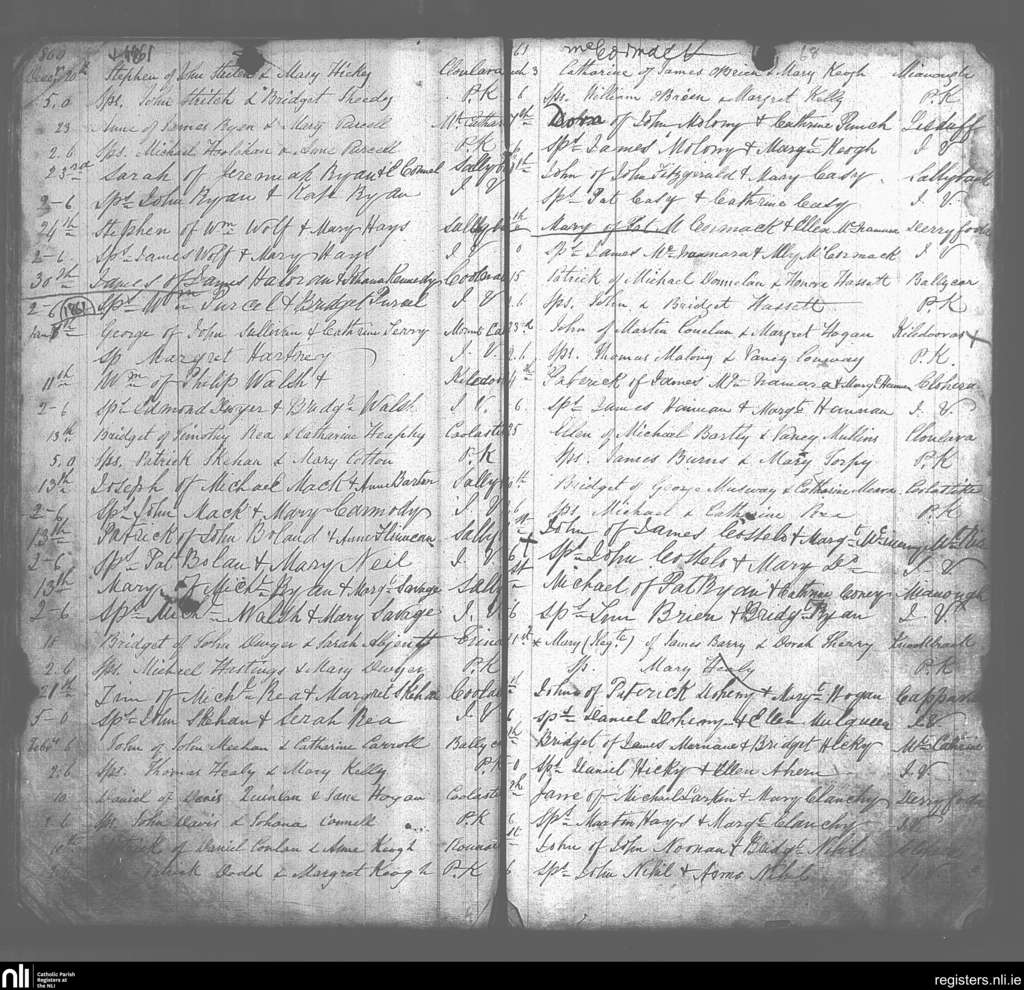 1860 & 1861
Decr 20th Stephen of John Stritch & Mary Hickey Clonlara
5. 0 Sps. John Stritch & Bridget Sheedy P.K
23 Anne of James Ryan & Mary Purcell Mt. Catharine
2. 6 Sps. Michael Houlihan & Anne Purcell P.K
23rd Sarah of Jeremiah Ryan & C Connel Sallybank
2-6 Sps. John Ryan & Kate Ryan J. V
24th Stephen of Wm Wolf & Mary Hays Sallyb
2-6 Sps. James Wolf & Mary Hays J. V
30th James of James Haloran & Johana Kennedy Coolas
2-6 Sps. Wm Purcel & Bridget Purcel J. V
1861
Jany George of John Sullivan & Cathrine Terry
Sp Margret Hartney J. V.
11th Wm of Philip Walsh & Kiledoo
2-6 Spt. Edmond Dwyer & Bridgt. Walsh J. V.
13th Bridget of Timothy Rea & Catharine Heaphy Coolaste
5. 0 Sps. Patrick Skehan & Mary Cotton P.K
13th Joseph of Michael Mack & Anne Barter Sally
2-6 Spt. John Mack & Mary Carmody J. V
13th Patrick of John Boland & Anne Flinncan Sally
2-6 Sps. Pat Bolan & Mary Neil J. V
13th Mary of Michl. Ryan & Margt. Savage Sally
2-6 Sps. Michl. Walsh & Mary Savage J. V
18 Bridget of John Dwyer & Sarah
2. 6 Sps. Michael Hastings & Mary Dwyer P.K
21th of Michl. Rea & Margret Skehan Coolas
5-0 Spt. John Skehan & Serah Rea J. V
Feby. 6 John of John Meehan & Catharine Carroll Ballyc
2. 6 Sps. Thomas Healy & Mary Kelly P.K
10 Daniel of Denis Quinlan & Jane Hogan Coolaste
2. 6 Sps. John Davis & Johana Connell P.K
of Daniel Conlan & Anne Keogh
Patrick Dodd & Margret Keogh P.K
61 McCormack 68
3 Catharine of James OBrien & Mary Keogh
6 Sps. William OBrien & Margret Kelly P.K
7th Dora of John Molony & Cathrine Punch Lisduff
6 Spt. James Molony & Margt. Keogh J. V
John of John Fitzgerald & Mary Casy Sallybank
Spt. Pat Casy & Cathrine Casy J. V.
Mary of Pat McCormack & Ellen McNamara Derryfada
0 Spt. James McNamara & Ally McCormack J. V
15 Patrick of Michael Donnelan & Honora Hassett Ballycar
2 6 Sps. John & Bridget Hassett P.K
23rd John of Martin Conelan & Margret Hogan Kiledooras +
2. 6 Sps. Thomas Malony & Nancy Conway P.K
Paterick of James McNamara & Mary Hannan Clohera
6. Spt. James Hannan & Margt. Hannan J. V.
25 Ellen of Michael Bartly & Nancy Mullins Clonlara
Sps. James Burns & Mary Torpy P.K
Bridget of George & Catharine Meara
6 Sps. Michael & Catharine Rea P.K
+ John of James Costelo & Margt.
6 Spt. John Costelo & Mary Do. J. V
Michael of Pat Ryan & Cathrine Coney
6 Spt. Brien & Bridgt. Ryan J. V
Mary of James Barry & Dorah Sherry
Sp. Mary Healy P.K
John of Paterick Doheny & Margt. Hogan Cappa
6 Spt. Daniel Doheny & Ellen Mulqueen J.V
Bridget of James & Bridget Hicky Mt. Catherine
0 Spt. Daniel Hicky & Ellen Ahern J.V.
Jane of Michael Larkin & Mary Clanchy Derryfada
6 Spt. Martin Hays & Margt. Clanchy J.V
John of John Noonan & Bridgt. Nihil
6 Spt. John Nihil & Nihil
nli Catholic Parish
Registers at
the NLI
registers.nli.ie